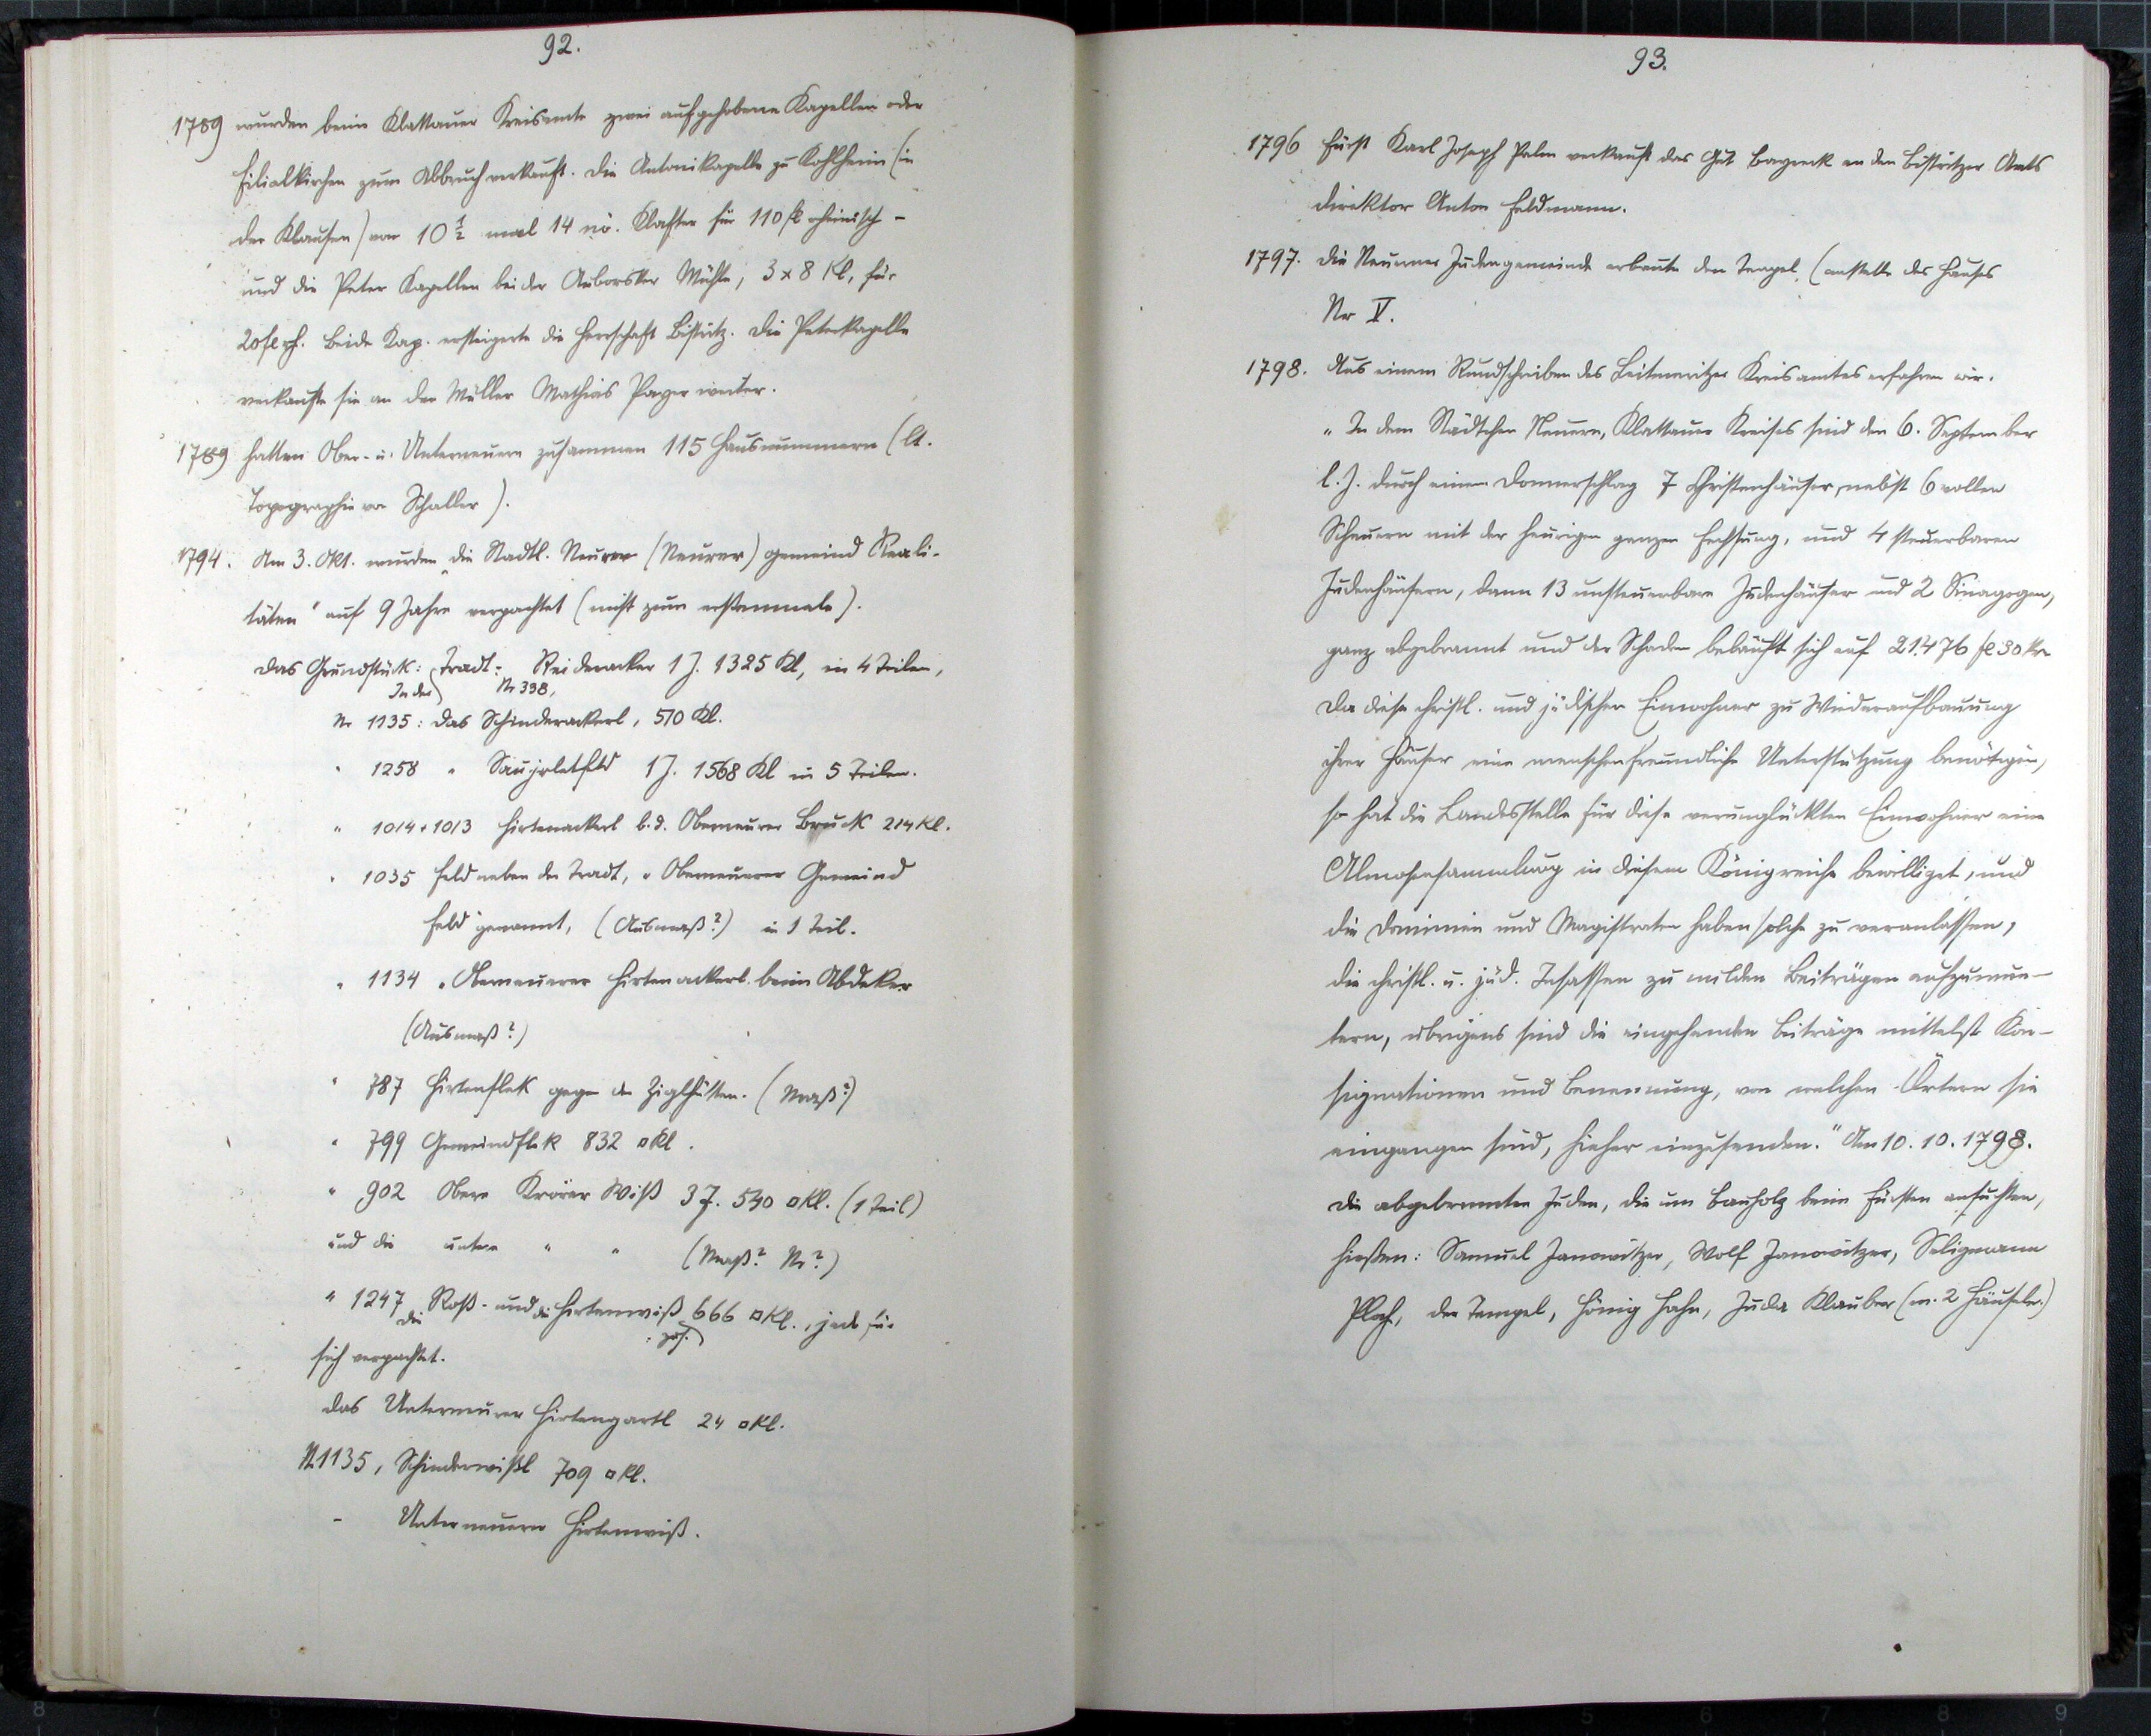 92.
1789 wurden beim Klattauer Kreisamte zwei aufgehobene Kapellen oder
Filialkirchen zum Abbruch verkauft. Die Antonikapelle zu Kohlheim (in
der Klausen) von 10 1/2 mal 14 nö. Klafter für 110 fl rheinisch -
und die Peter Kapellen bei der Auborsker Mühle, 3 x 8 Kl, für
20 fl rh. Beide Kap. ersteigerte die Herrschaft Bistritz. Die Peterkapelle
verkaufte sie an den Müller Mathias Payer weiter.
1789 hatten Ober- u. Unterneuern zusammen 115 Hausnummern (lt.
Topographie von Schaller).
1794. Am 3. Okt. wurden „die Stadtl. Neurer (Neurer) gemeind Reali-
täten" auf 9 Jahre verpachtet (nicht zum erstenmale).
Das Grundstück: In der Tradt: Nr 398, Reideracker 1 J. 1325 Kl, in 4 Teilen,
Nr 1135: Das Schinderackerl, 510 Kl.
" 1258 " 1 J. 1568 Kl in 5 Teilen.
" 1014 + 1013 Hirtenackerl b. d. Oberneurer Bruck 214 Kl.
" 1035 Feld neben der Tradt, „Oberneuerer Gemeind
Feld" genannt, (Ausmaß?) in 1 Teil.
" 1134 „Oberneuerer Hirtenackerl beim Abdeker
(Ausmaß?)
" 787 Hirtenflek gegen der Ziglhütten. (Maß?)
" 799 Gemeindflek 832 □Kl.
" 902 Obere Wiß 3 J. 540 □Kl. (1 Teil)
und die untere " " (Maß? Nr?)
" 1247 die Roß- und die Hirtenwiß zus. 666 □Kl., jede für
sich verpachtet.
Das Unterneurer Hirtengartl 24 □Kl.
N. 1135, Schinderwißl 709 □Kl.
- Unterneuerer Hirtenwiß.
93.
1796 Fürst Karl Joseph Palm verkauft das Gut Bayreck an den Bistritzer Amts
direktor Anton Feldmann.
1797. Die Neuerner Judengemeinde erbaute den Tempel. (anstelle des Hauses
Nr V.
1798. Aus einem Rundschreiben des Leitmeritzer Kreisamtes erfahren wir.
„In dem Städtchen Neuern, Klattauer Kreises sind den 6. September
l. J. durch einen Donnerschlag 7 Christenhäuser, nebst 6 vollen
Scheuern mit der heurigen ganzen Fechsung, und 4 steuerbaren
Judenhäusern, dann 13 unsteuerbare Judenhäuser und 2 Sinagogen,
ganz abgebrannt und der Schaden beläuft sich auf 21.476 fl 30 kr
Da diese christl. und jüdischen Einwohner zu Wiederaufbauung
ihrer Häuser eine menschenfreundliche Unterstützung benötigen,
so hat die Landesstelle für diese verunglückten Einwohner eine
Almosensammlung in diesem Königreiche bewilliget, und
die Dominien und Magistraten haben solche zu veranlassen,
die christl. u. jüd. Insassen zu milden Beiträgen aufzumun-
tern, übrigens sind die eingehenden Beiträge mittelst Kon-
signationen und Benennung, von welchen Örtern sie
eingangen sind, hieher einzusenden." Am 10. 10. 1798.
Die abgebrannten Juden, die um Bauholz beim Fürsten ansuchten,
hießen: Samuel Janowitzer, Wolf Janowitzer, Seligmann
Ploch, der Tempel, Hönig Hahn, Juda Klauber (m. 2 Häuseln.)